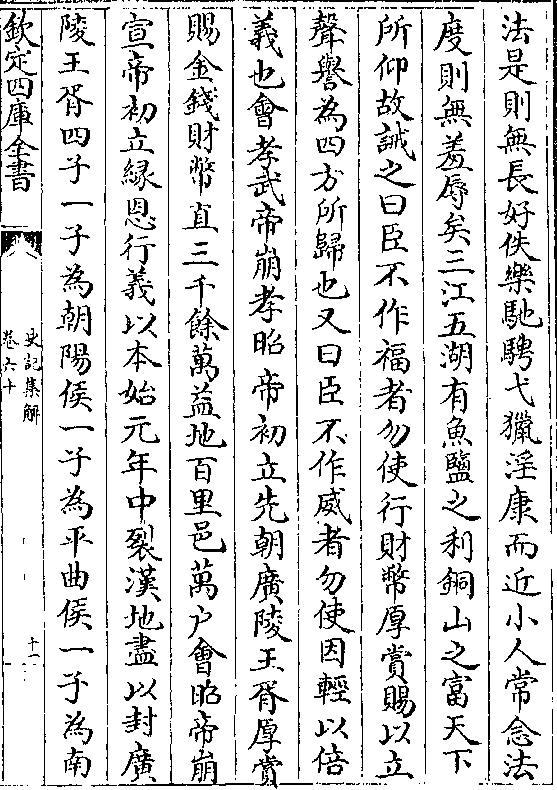 法是則無長好佚樂馳騁弋獵淫康而近小人常念法
度則無羞辱矣三江五湖有魚鹽之利銅山之富天下
所仰故誡之曰臣不作福者勿使行財幣厚賞賜以立
聲譽為四方所歸也又曰臣不作威者勿使因輕以倍
義也會孝武帝崩孝昭帝初立先朝廣陵王胥厚賞
賜金錢財幣直三千餘萬益地百里邑萬户會昭帝崩
宣帝初立緣恩行義以本始元年中裂漢地盡以封廣
陵王胥四子一子為朝陽侯一子為平曲侯一子為南
欽定四庫全書
史記集解
卷六十
十一